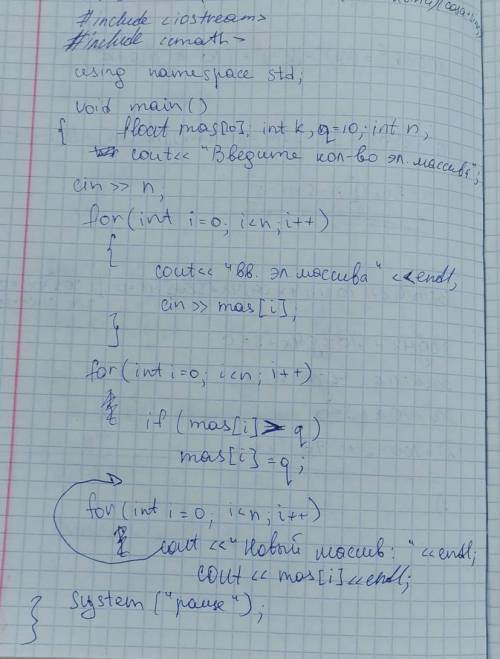 #include <iostream>
#include <cmath>
using namespace std;
void main()
{ float mas[10]; int k, q=10; int n;
cout<< "Введите кол-во эл. массива";
cin >> n;
for (int i=0; i<n; i++)
{
cout<< "Вв. эл массива" <<endl;
cin >> mas[i];
}
for (int i=0; i<n; i++)
if (mas[i] > q)
mas[i] = q;
for (int i=0; i<n; i++)
cout <<"Новый массив: " <<endl;
cout << mas[i] <<endl;
system ("pause");
}